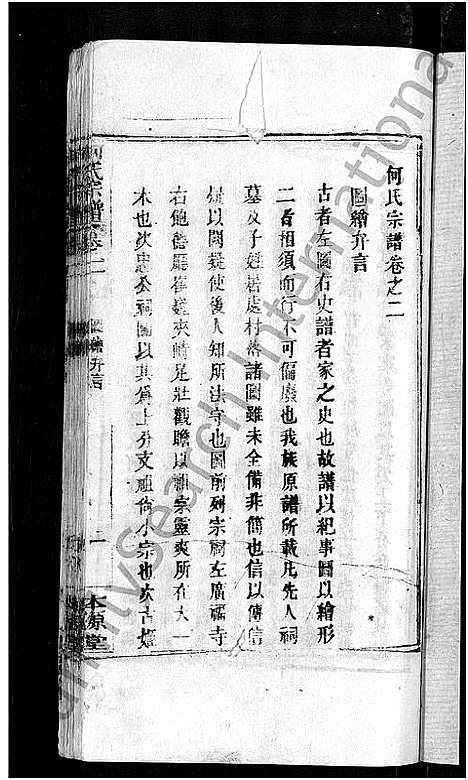 何氏宗譜卷之二
圖繪弁言
古者左圖右史譜者家之史也故譜以紀事圖以繪形
二者相須而行不可偏廢也我族原譜所載凡先人祠
墓及子姓居處村落諸圖雖未全備非簡也信以傳信
疑以闕疑使後人知所法守也圖前列宗祠左廣福寺
右飽德廳崔巍夾峙足壯觀瞻以祖宗靈爽所在大一
本也次忠公祠圖以其爲上分支祖尙小宗也次古
何氏宗譜 卷二 圖繪弁言 一 本源堂
FamilySearch International